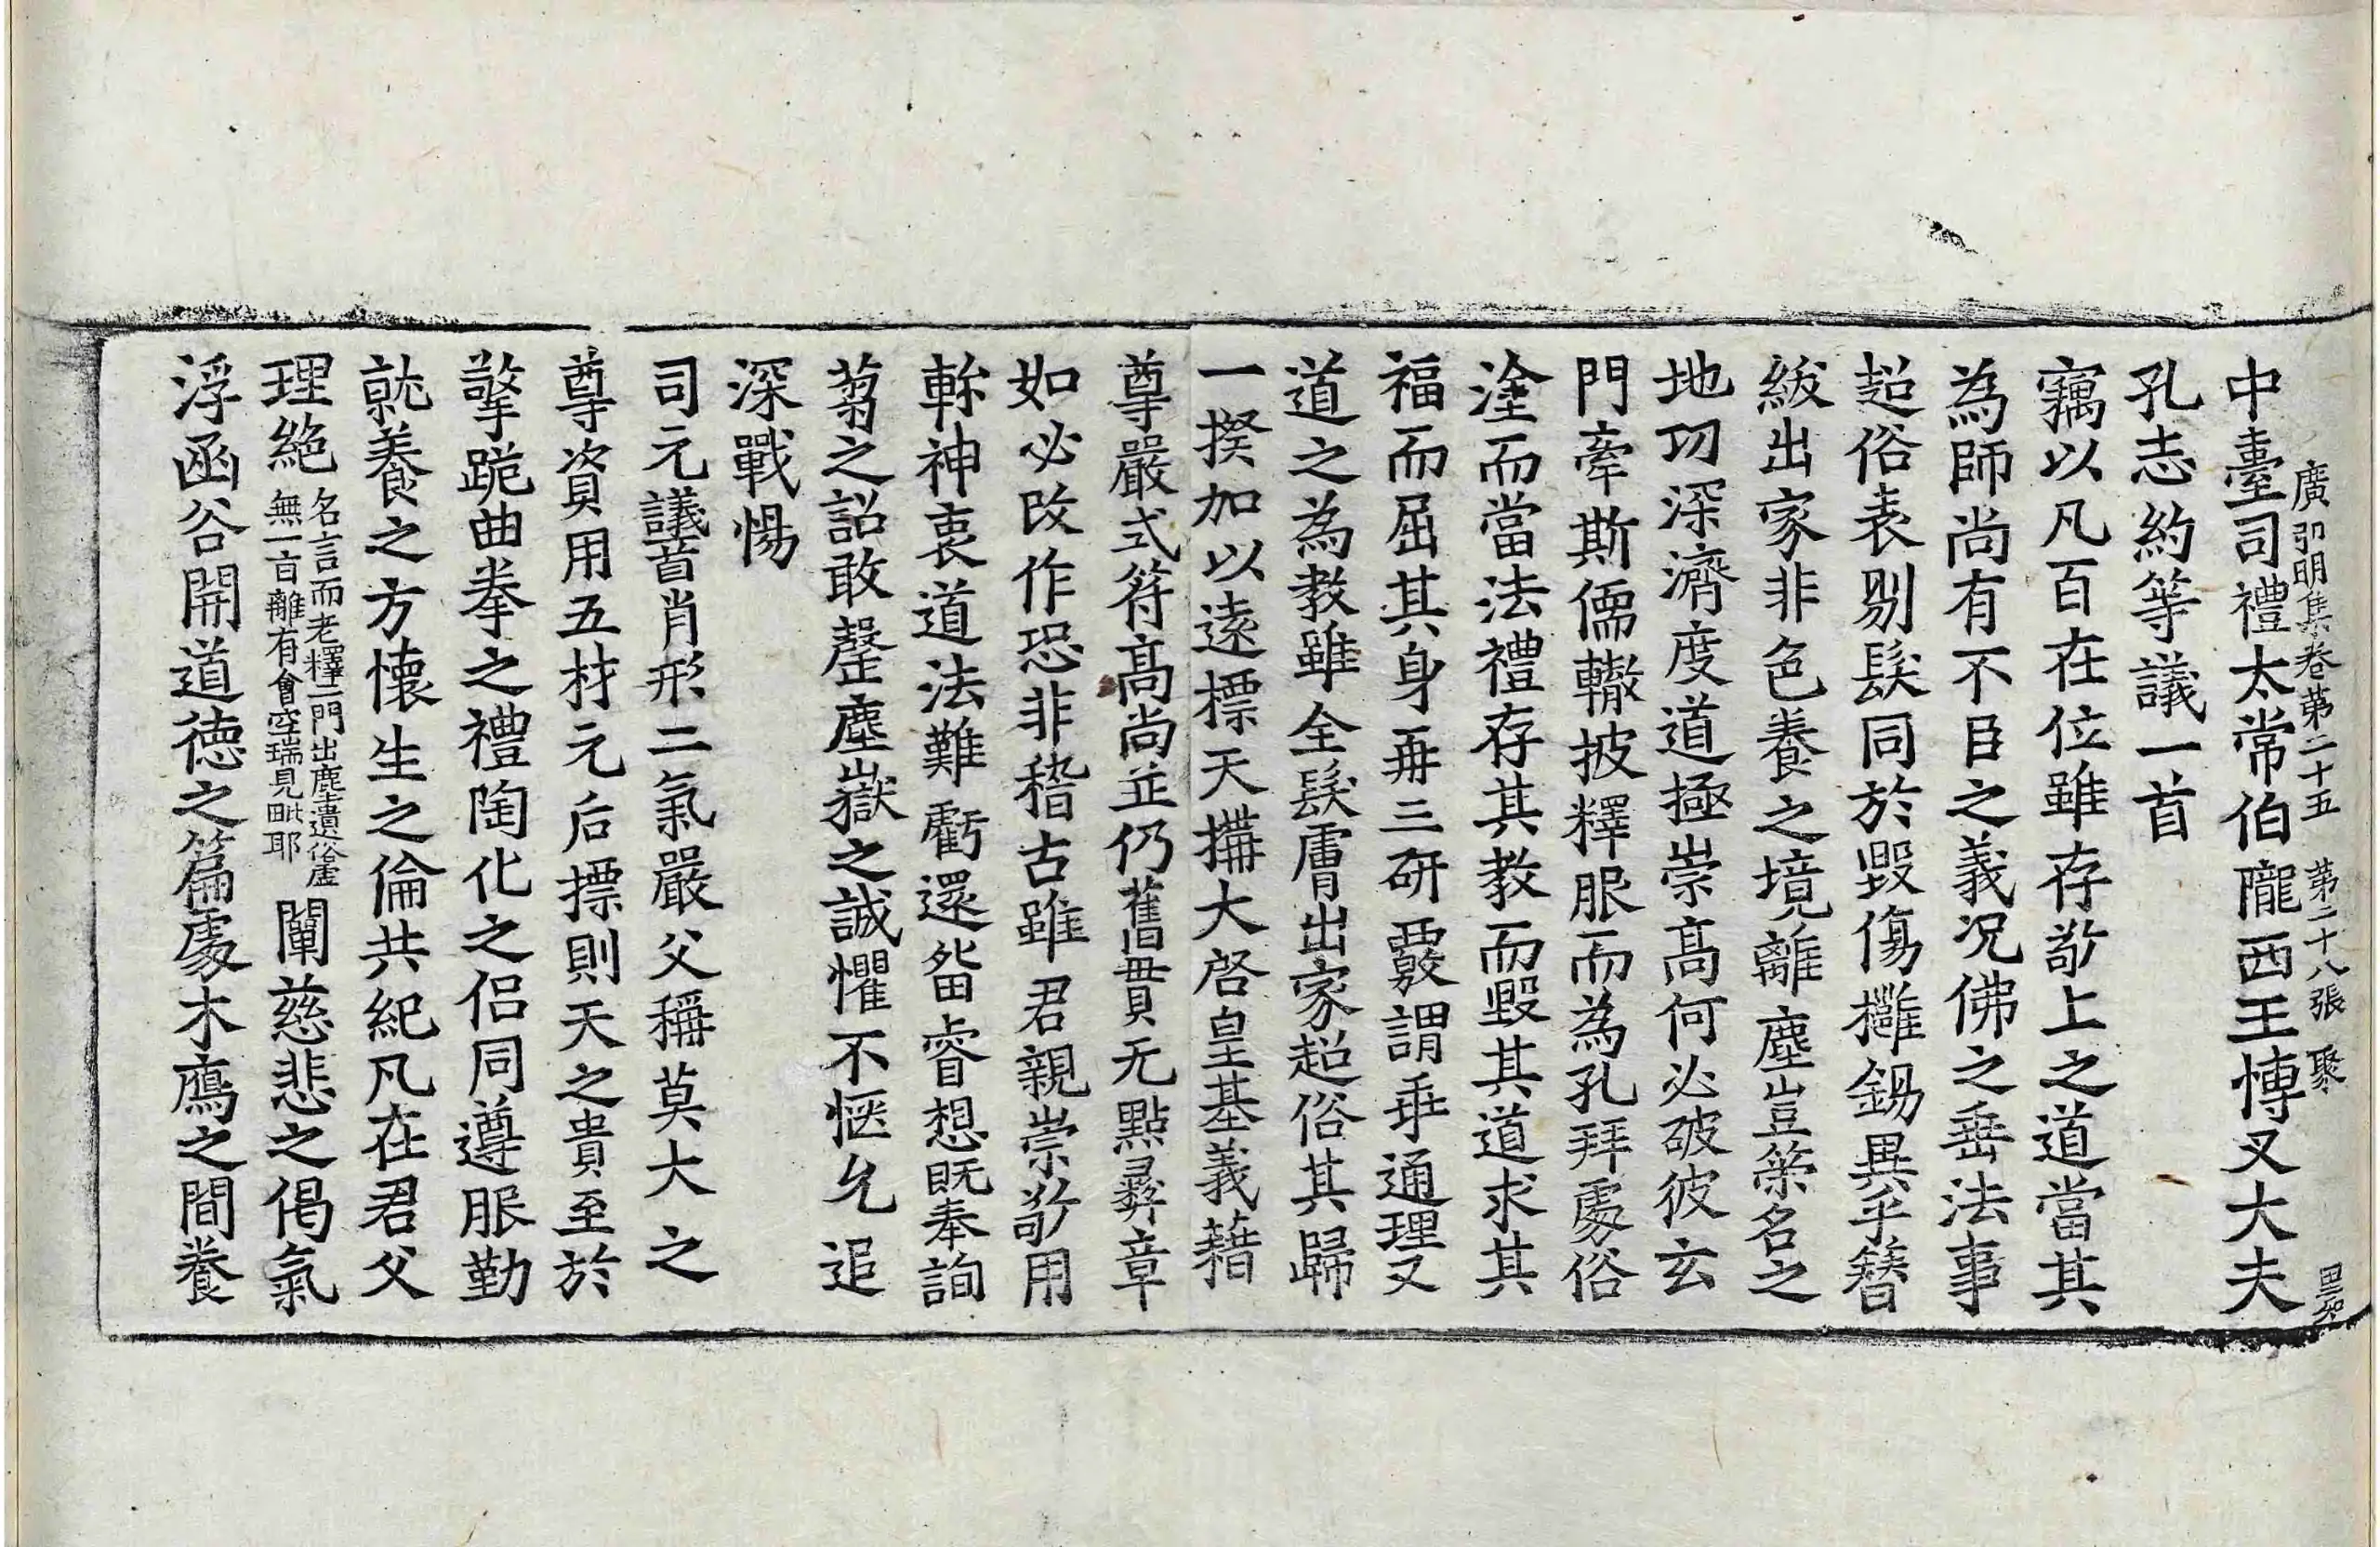 廣弘明集卷第二十五 第二十八張 聚
中臺司禮太常伯隴西王博叉大夫
孔志約等議一首
竊以凡百在位雖存敬上之道當其
為師尚有不臣之義况佛之垂法事
超俗表剔髮同於毀傷擁錫異乎簪
紱出家非色養之境離塵豈榮名之
地功深濟度道極崇髙何必破彼玄
門牽斯儒轍披釋服而為孔拜處俗
塗而當法禮存其教而毀其道求其
福而屈其身再三研覈謂乖通理又
道之為教雖全髮膚出家超俗其歸
一揆加以遠標天構大啓皇基義藉
尊嚴式符髙尚並仍舊貫无點彝章
如必改作恐非稽古雖君親崇敬用
軫神衷道法難虧還留睿想既奉詢
蒭之詔敢罄塵嶽之誠懼不惬允追
深戰惕
司元議首肖形二氣嚴父稱莫大之
尊資用五材元后摽則天之貴至於
擎跪曲拳之禮陶化之侣同遵服勤
就養之方懷生之倫共紀凡在君父
理絶名言而老釋二門出塵遺俗虛無一旨離有會空瑞見毗耶闡慈悲之偈氣
浮函谷開道德之篇處木鴈之間養